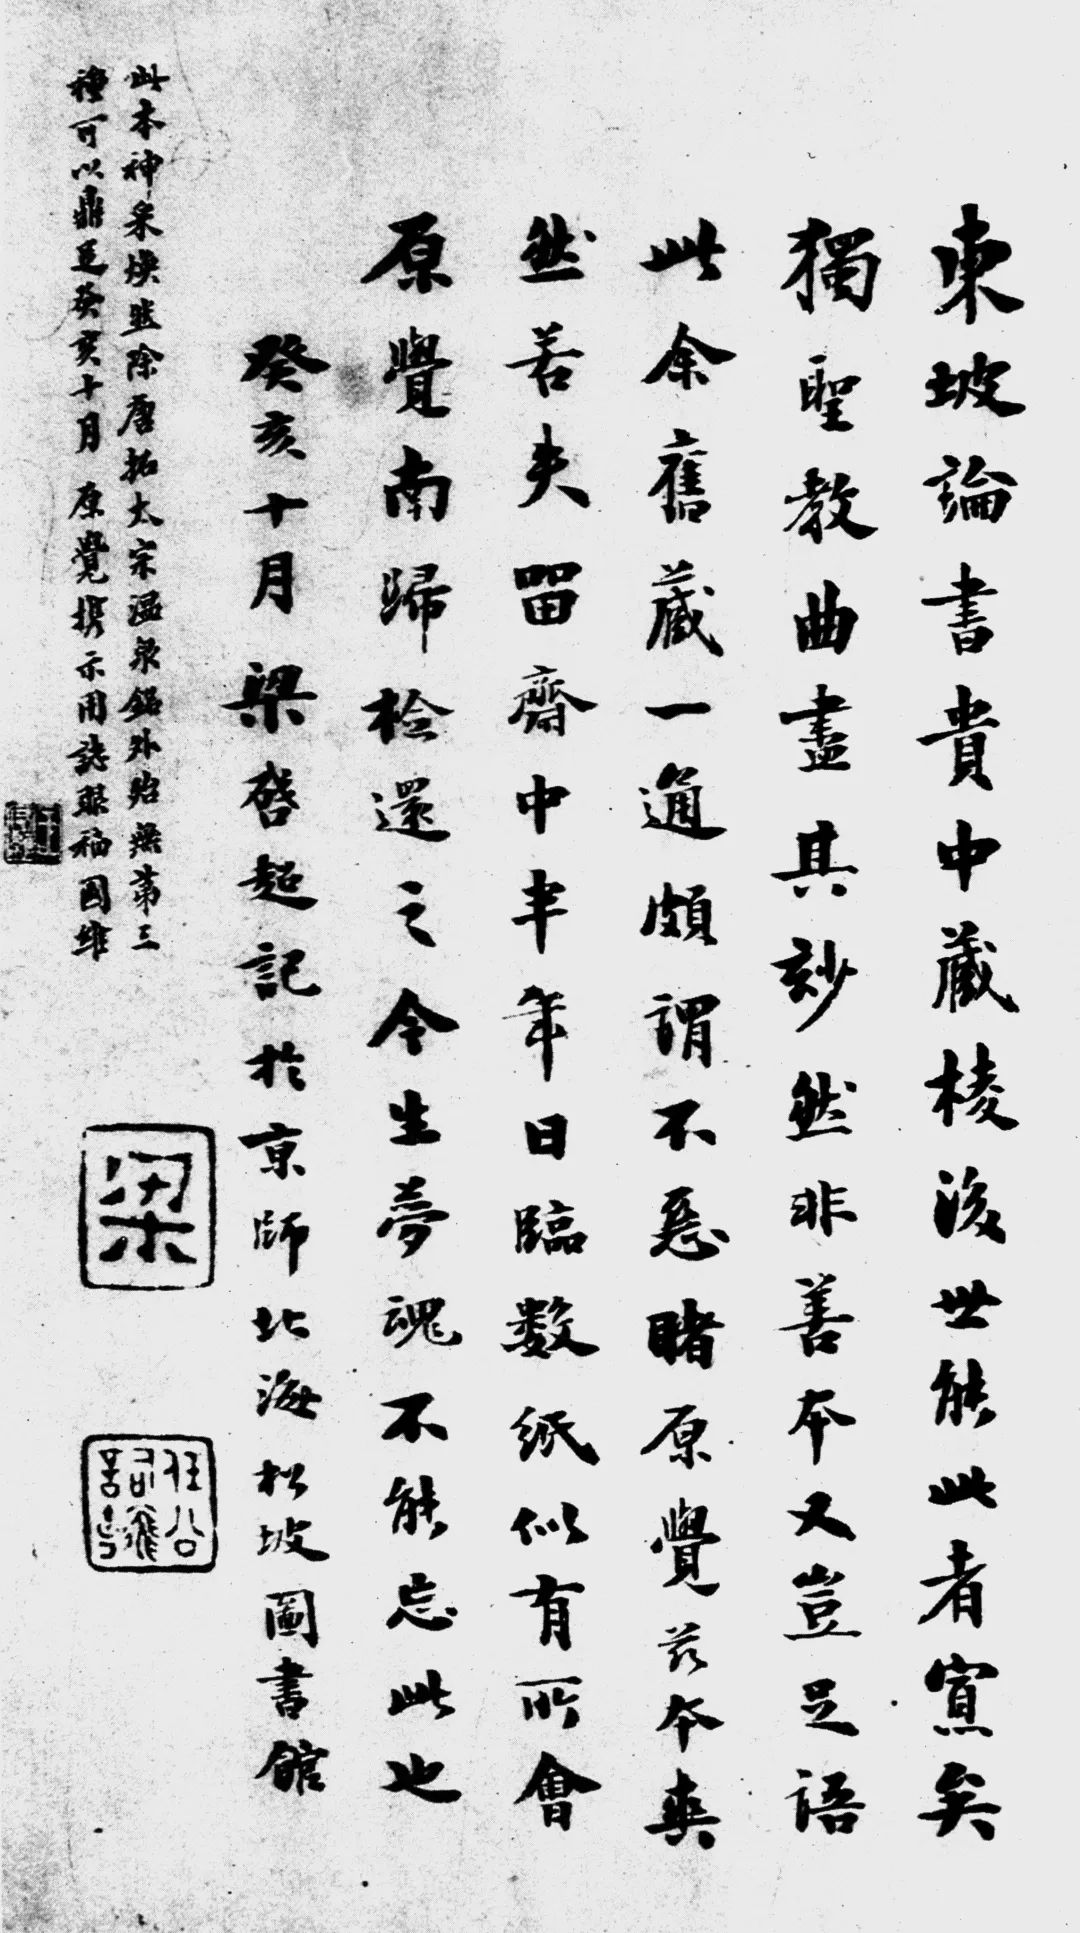 東坡論書貴中藏棱後世能此者寡矣
獨聖教曲盡其妙然非善本又豈足語
此余舊藏一通頗謂不惡睹原覺茲本爽
然若失留齋中半年日臨數紙似有所會
原覺南歸檢還之今生夢魂不能忘此也
癸亥十月梁啓超記於京師北海松坡圖書館
此本神采煥然除唐拓太宗溫泉銘外殆無第三
種可以鼎足癸亥十月原覺携示用誌眼福國維
梁
任公